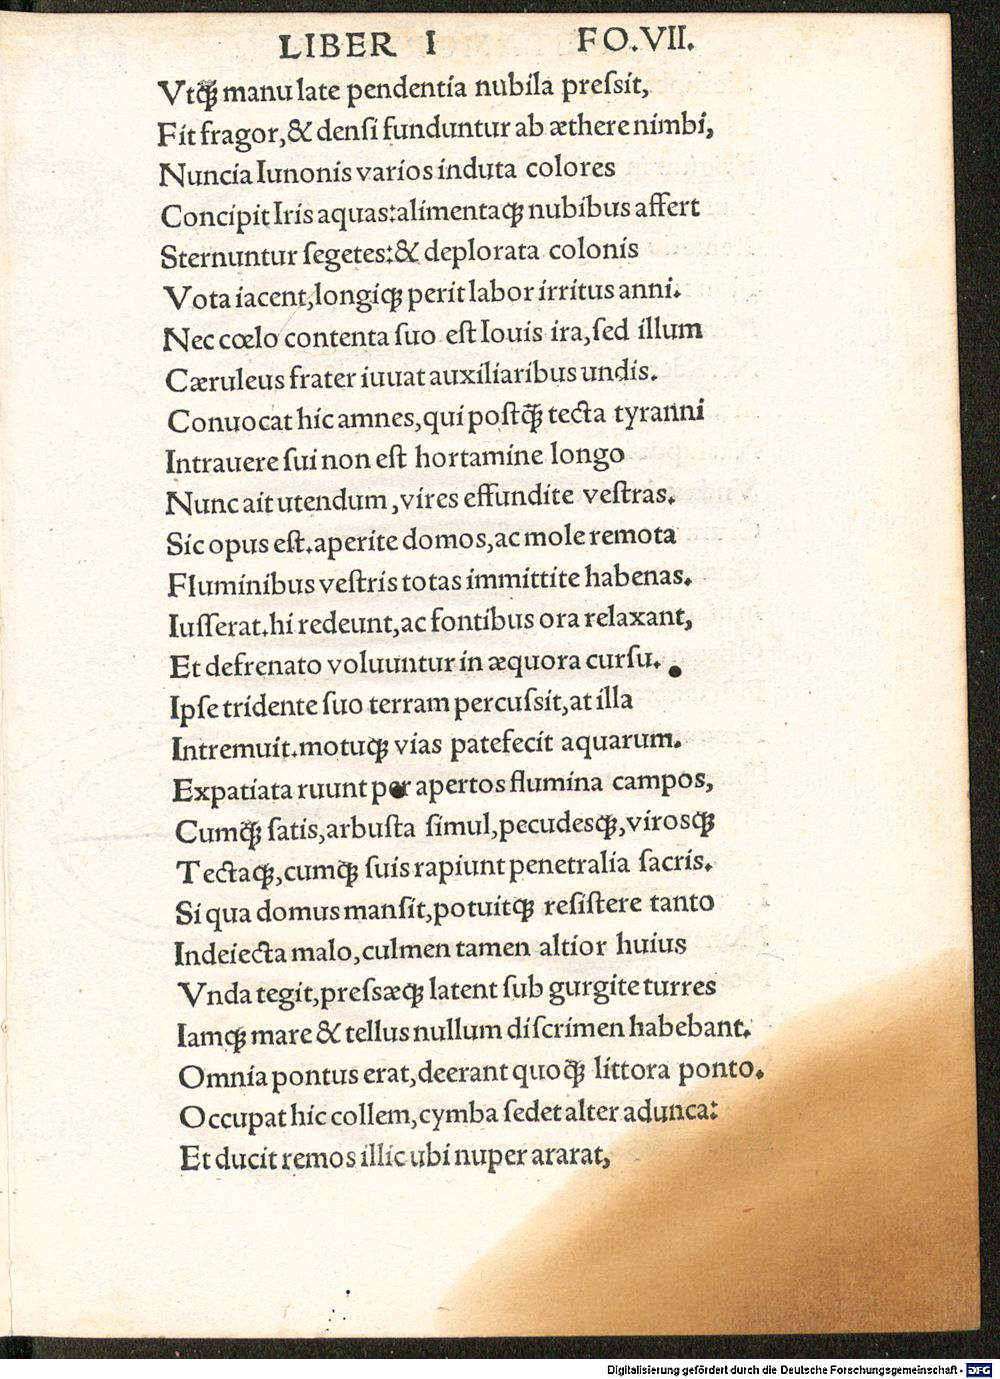 LIBER I FO.VII.
Vtq̃ manu late pendentia nubila preſsit,
Fit fragor,& denſi funduntur ab æthere nimbi,
Nuncia Iunonis varios induta colores
Concipit Iris aquas:alimentaꝗ nubibus affert
Sternuntur ſegetes:& deplorata colonis
Vota iacent,longiꝗ perit labor irritus anni.
Nec cœlo contenta ſuo eſt Iouis ira,ſed illum
Cæruleus frater iuuat auxiliaribus undis.
Conuocat hic amnes,qui poſtꝗ̃ tecta tyranni
Intrauere ſui non eſt hortamine longo
Nunc ait utendum,vires effundite veſtras.
Sic opus eſt.aperite domos,ac mole remota
Fluminibus veſtris totas immittite habenas.
Iuſſerat.hi redeunt,ac fontibus ora relaxant,
Et defrenato voluuntur in æquora curſu.
Ipſe tridente ſuo terram percuſsit,at illa
Intremuit.motuꝗ vias patefecit aquarum.
Expatiata ruunt per apertos flumina campos,
Cumꝗ̃ ſatis,arbuſta ſimul,pecudesꝗ,virosꝗ
Tectaꝗ,cumꝗ̃ ſuis rapiunt penetralia ſacris.
Si qua domus manſit,potuitꝗ reſiſtere tanto
Indeiecta malo,culmen tamen altior huius
Vnda tegit,preſsæꝗ latent ſub gurgite turres
Iamꝗ mare & tellus nullum diſcrimen habebant.
Omnia pontus erat,deerant quoꝗ̃ littora ponto.
Occupat hic collem,cymba ſedet alter adunca:
Et ducit remos illic ubi nuper ararat,
Digitalisierung gefördert durch die Deutsche Forschungsgemeinschaft - DFG